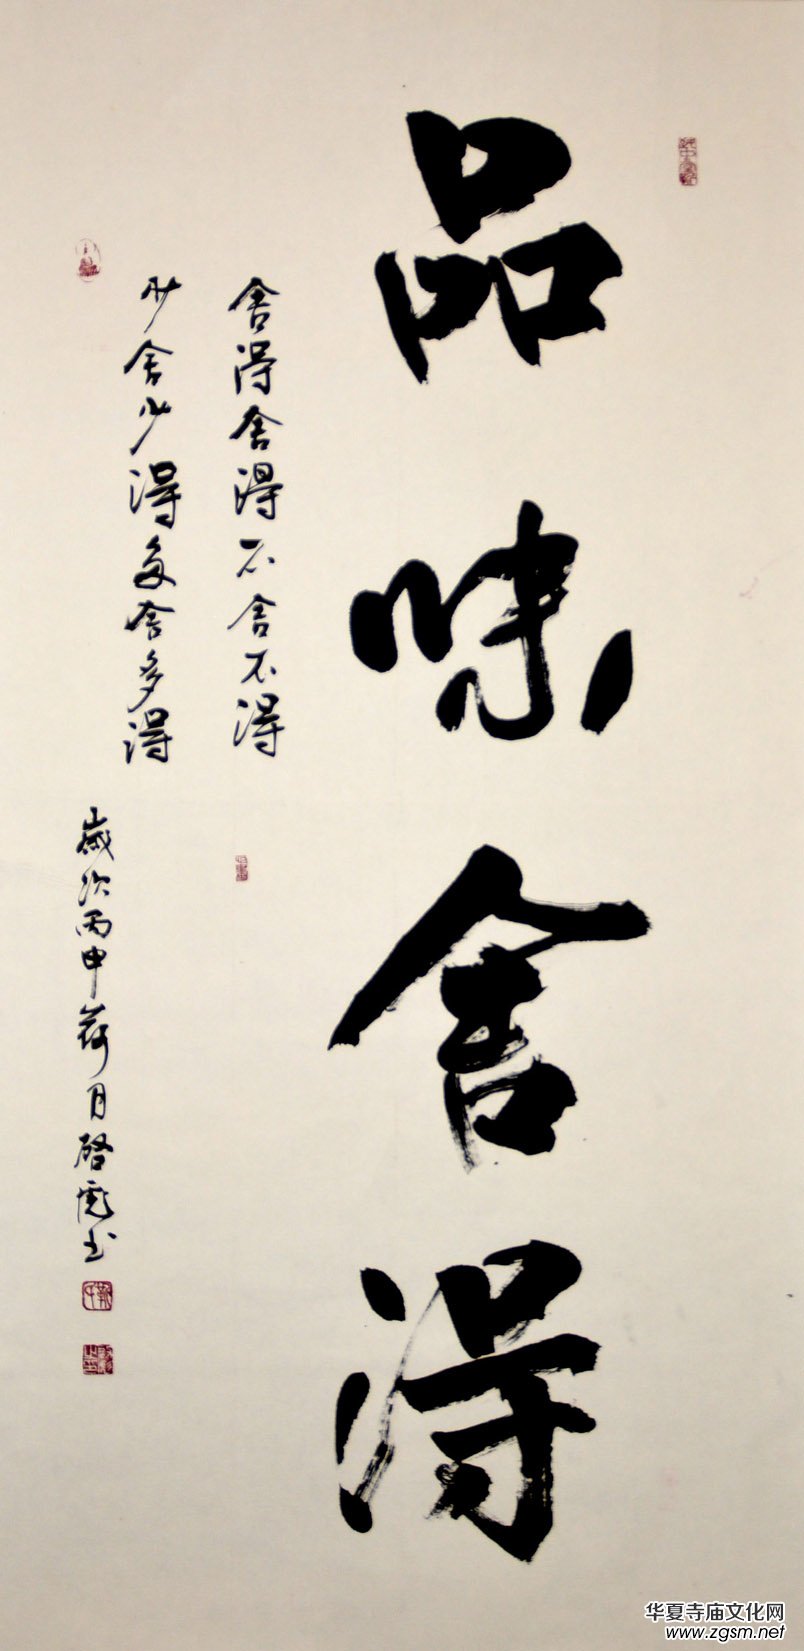 品味舍得
舍得舍得不舍不得
少舍少得多舍多得
歲次丙申荷月啓彪书
华夏寺庙文化网
www.zgsm.net